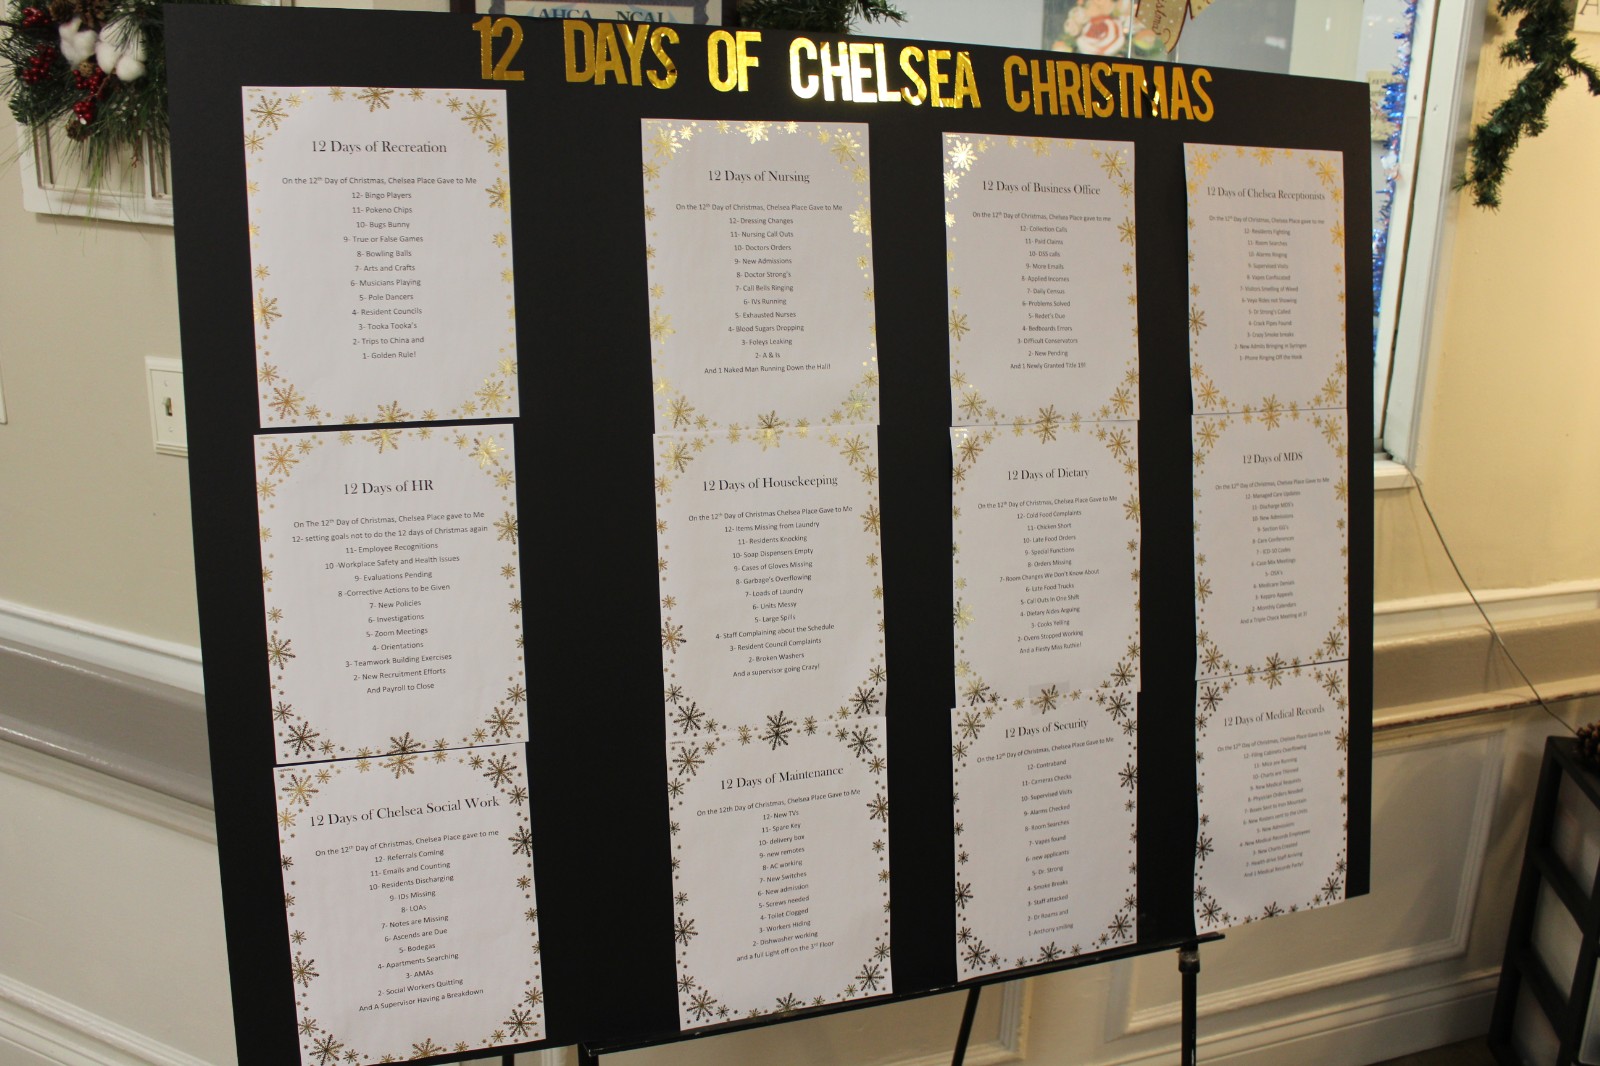 AHCA NCAL
12 DAYS OF CHELSEA CHRISTMAS
12 Days of Recreation
On the 12th Day of Christmas, Chelsea Place Gave to Me
12- Bingo Players
11- Pokeno Chips
10- Bugs Bunny
9- True or False Games
8- Bowling Balls
7- Arts and Crafts
6- Musicians Playing
5- Pole Dancers
4- Resident Councils
3- Tooka Tooka's
2- Trips to China and
1- Golden Rule!
12 Days of HR
On The 12th Day of Christmas, Chelsea Place gave to Me
12- setting goals not to do the 12 days of Christmas again
11- Employee Recognitions
10 -Workplace Safety and Health Issues
9- Evaluations Pending
8 -Corrective Actions to be Given
7- New Policies
6- Investigations
5- Zoom Meetings
4- Orientations
3- Teamwork Building Exercises
2- New Recruitment Efforts
And Payroll to Close
12 Days of Chelsea Social Work
On the 12th Day of Christmas, Chelsea Place gave to me
12- Referrals Coming
11- Emails and Counting
10- Residents Discharging
9- IDs Missing
8- LOAs
7- Notes are Missing
6- Ascends are Due
5- Bodegas
4- Apartments Searching
3- AMAs
2- Social Workers Quitting
And A Supervisor Having a Breakdown
12 Days of Nursing
On the 12th Day of Christmas, Chelsea Place Gave to Me
12- Dressing Changes
11- Nursing Call Outs
10- Doctors Orders
9- New Admissions
8- Doctor Strong's
7- Call Bells Ringing
6- IVs Running
5- Exhausted Nurses
4- Blood Sugars Dropping
3- Foleys Leaking
2- A & Is
And 1 Naked Man Running Down the Hall!
12 Days of Housekeeping
On the 12th Day of Christmas Chelsea Place Gave to Me
12- Items Missing from Laundry
11- Residents Knocking
10- Soap Dispensers Empty
9- Cases of Gloves Missing
8- Garbage's Overflowing
7- Loads of Laundry
6- Units Messy
5- Large Spills
4- Staff Complaining about the Schedule
3- Resident Council Complaints
2- Broken Washers
And a supervisor going Crazy!
12 Days of Maintenance
On the 12th Day of Christmas, Chelsea Place Gave to Me
12- New TVs
11- Spare Key
10- delivery box
9- new remotes
8- AC working
7- New Switches
6- New admission
5- Screws needed
4- Toilet Clogged
3- Workers Hiding
2- Dishwasher working
and a full Light off on the 3rd Floor
12 Days of Business Office
On the 12th Day of Christmas, Chelsea Place gave to me
12- Collection Calls
11- Paid Claims
10- DSS calls
9- More Emails
8- Applied Incomes
7- Daily Census
6- Problems Solved
5- Redet's Due
4- Bedboards Errors
3- Difficult Conservators
2- New Pending
And 1 Newly Granted Title 19!
12 Days of Dietary
On the 12th Day of Christmas, Chelsea Place Gave to Me
12- Cold Food Complaints
11- Chicken Short
10- Late Food Orders
9- Special Functions
8- Orders Missing
7- Room Changes We Don't Know About
6- Late Food Trucks
5- Call Outs In One Shift
4- Dietary Aides Arguing
3- Cooks Yelling
2- Ovens Stopped Working
And a Fiesty Miss Ruthie!
12 Days of Security
On the 12th Day of Christmas, Chelsea Place Gave to Me
12- Contraband
11- Cameras Checks
10- Supervised Visits
9- Alarms Checked
8- Room Searches
7- Vapes found
6- new applicants
5- Dr. Strong
4- Smoke Breaks
3- Staff attacked
2- Dr Rooms and
1- Anthony smiling
12 Days of Chelsea Receptionists
On the 12th Day of Christmas, Chelsea Place gave to me
12- Residents Fighting
11- Room Searches
10- Alarms Ringing
9- Supervised Visits
8- Vapes Confiscated
7- Visitors Smelling of Weed
6- Veyo Rides not Showing
5- Dr Strong's Called
4- Crack Pipes Found
3- Crazy Smoke breaks
2- New Admits Bringing in Syringes
1- Phone Ringing Off the Hook
12 Days of MDS
On the 12th Day of Christmas, Chelsea Place Gave to Me
12- Managed Care Updates
11- Discharge MDS's
10- New Admissions
9- Section GG's
8- Care Conferences
7 - ICD-10 Codes
6- Case Mix Meetings
5- OSA's
4- Medicare Denials
3- Keppro Appeals
2- Monthly Calendars
And a Triple Check Meeting at 3!
12 Days of Medical Records
On the 12th Day of Christmas, Chelsea Place Gave to Me
12- Filing Cabinets Overflowing
11- MRIs are Running
10- Charts are Thinned
9- New Medical Requests
8- Physician Orders Needed
7- Boxes Sent to Iron Mountain
6- New Rosters sent to the Units
5- New Admissions
4- New Medical Records Employees
3- New Charts Created
2- Health drive Staff Arriving
And 1 Medical Records Party!